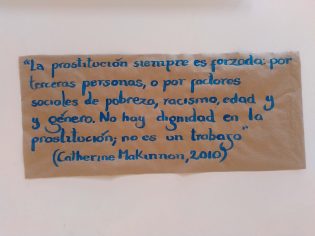 "La prostitución siempre es forzada: por
terceras personas, o por factores
sociales de pobreza, racismo, edad y
y género. No hay dignidad en la
prostitución; no es un trabajo"
(Catherine MaKinnon, 2010)